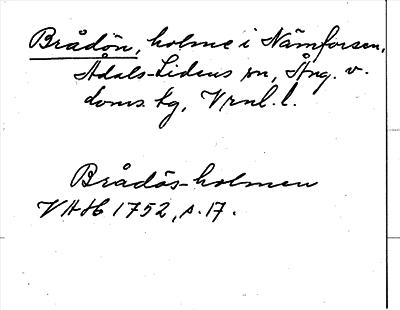 Brådön, holme i Nämforsen,
Ådals-Lidens sn, Ång. v.
doms. tg, Vrnl. l.
Brådös-holmen
VHAH 1752, s. 17.